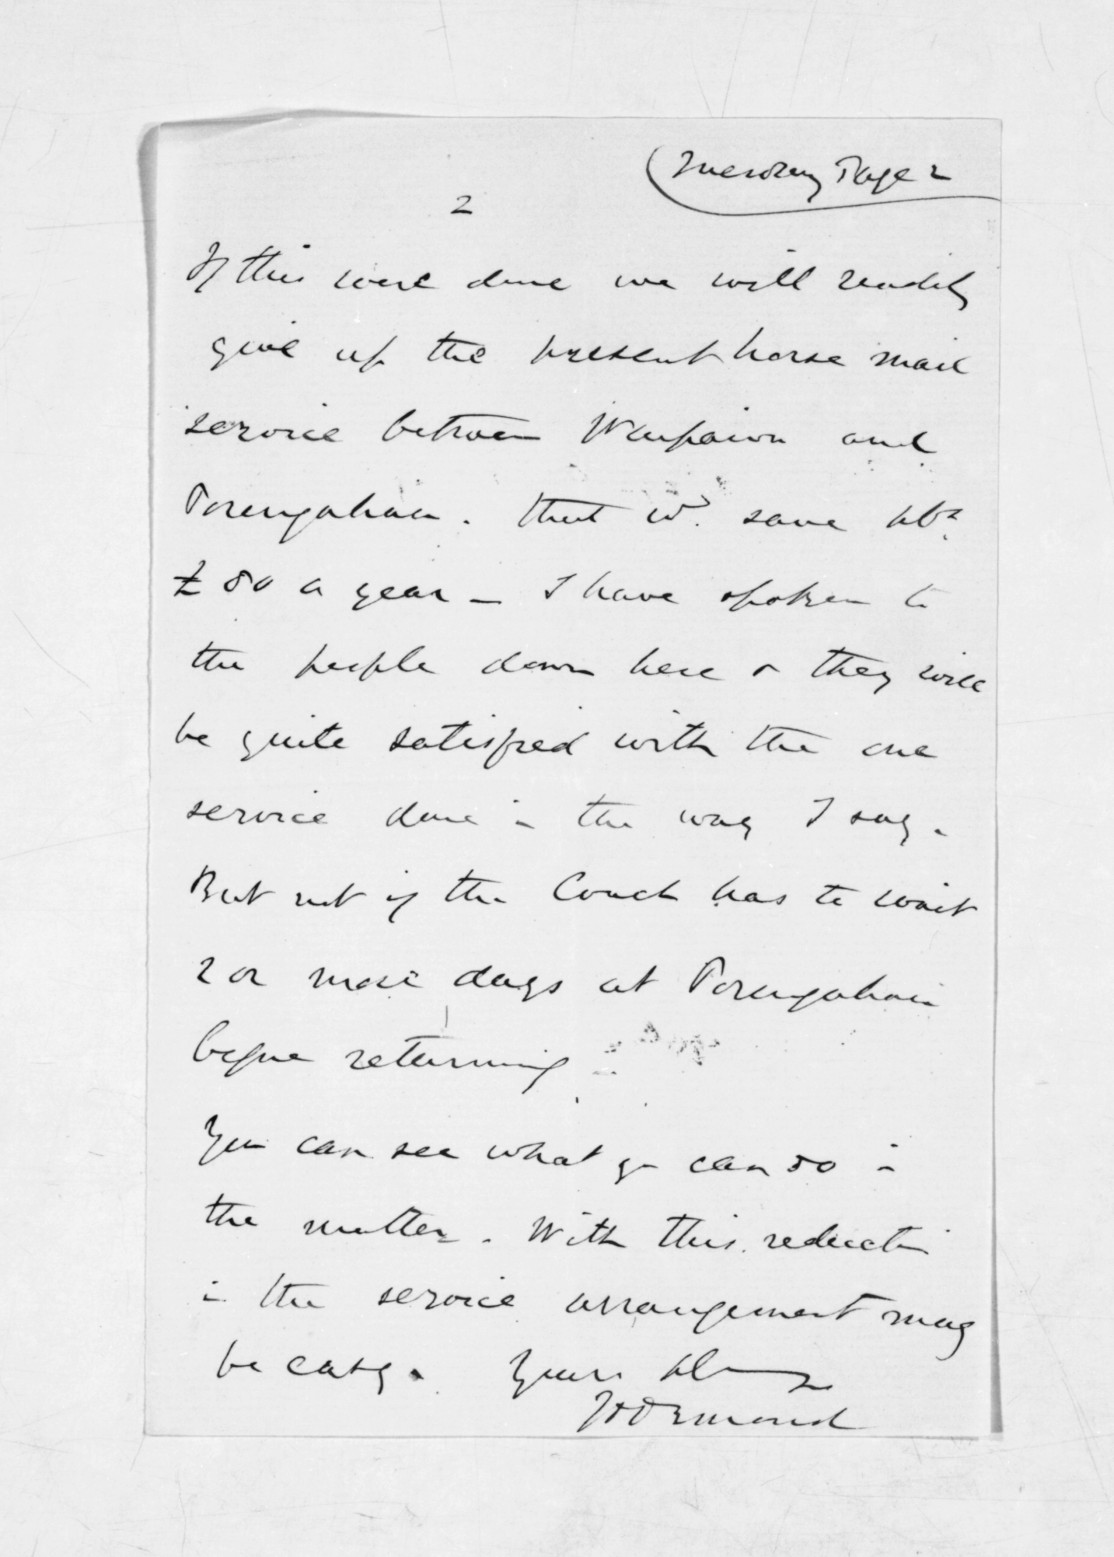 Tuesday Page 2
2
If this were done we will readily
give up the present horse mail
service between Waipawa and
Porangahau. that wd. save abt.
£80 a year – I have spoken to
the people down here & they will
be quite satisfied with the one
service done in the way I say.
But not if the Coach has to wait
2 or more days at Porangahau
before returning
You can see what you can do in
the matter. With this reduction
in the service arrangement may
be easy. Yours
JD Ormond